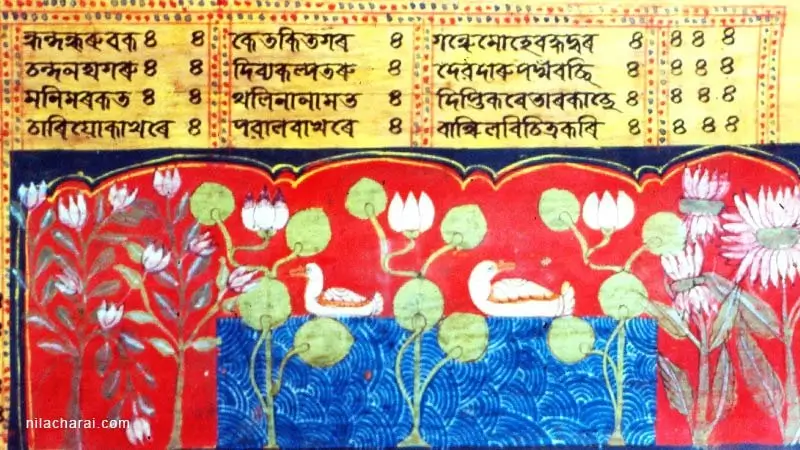 কুন্দকুৰুবক ৪ ৪ কেতকিতগৰ ৪ গন্ধেমোহেবহুদুৰ ৪ ৪ ৪ ৪
চন্দনঅগৰু ৪ ৪ দিব্যকল্পতৰু ৪ ৪ ৪ ৪ ৪
মনিমৰকত ৪ ৪ থলিনানামত ৪ দিপ্তিকৰেতাৰকাছে ৪ ৪ ৪ ৪
৪ পৱালবাখৰে ৪ বান্ধিলবিচিত্ৰকৰি ৪ ৪ ৪ ৪
nilacharai.com